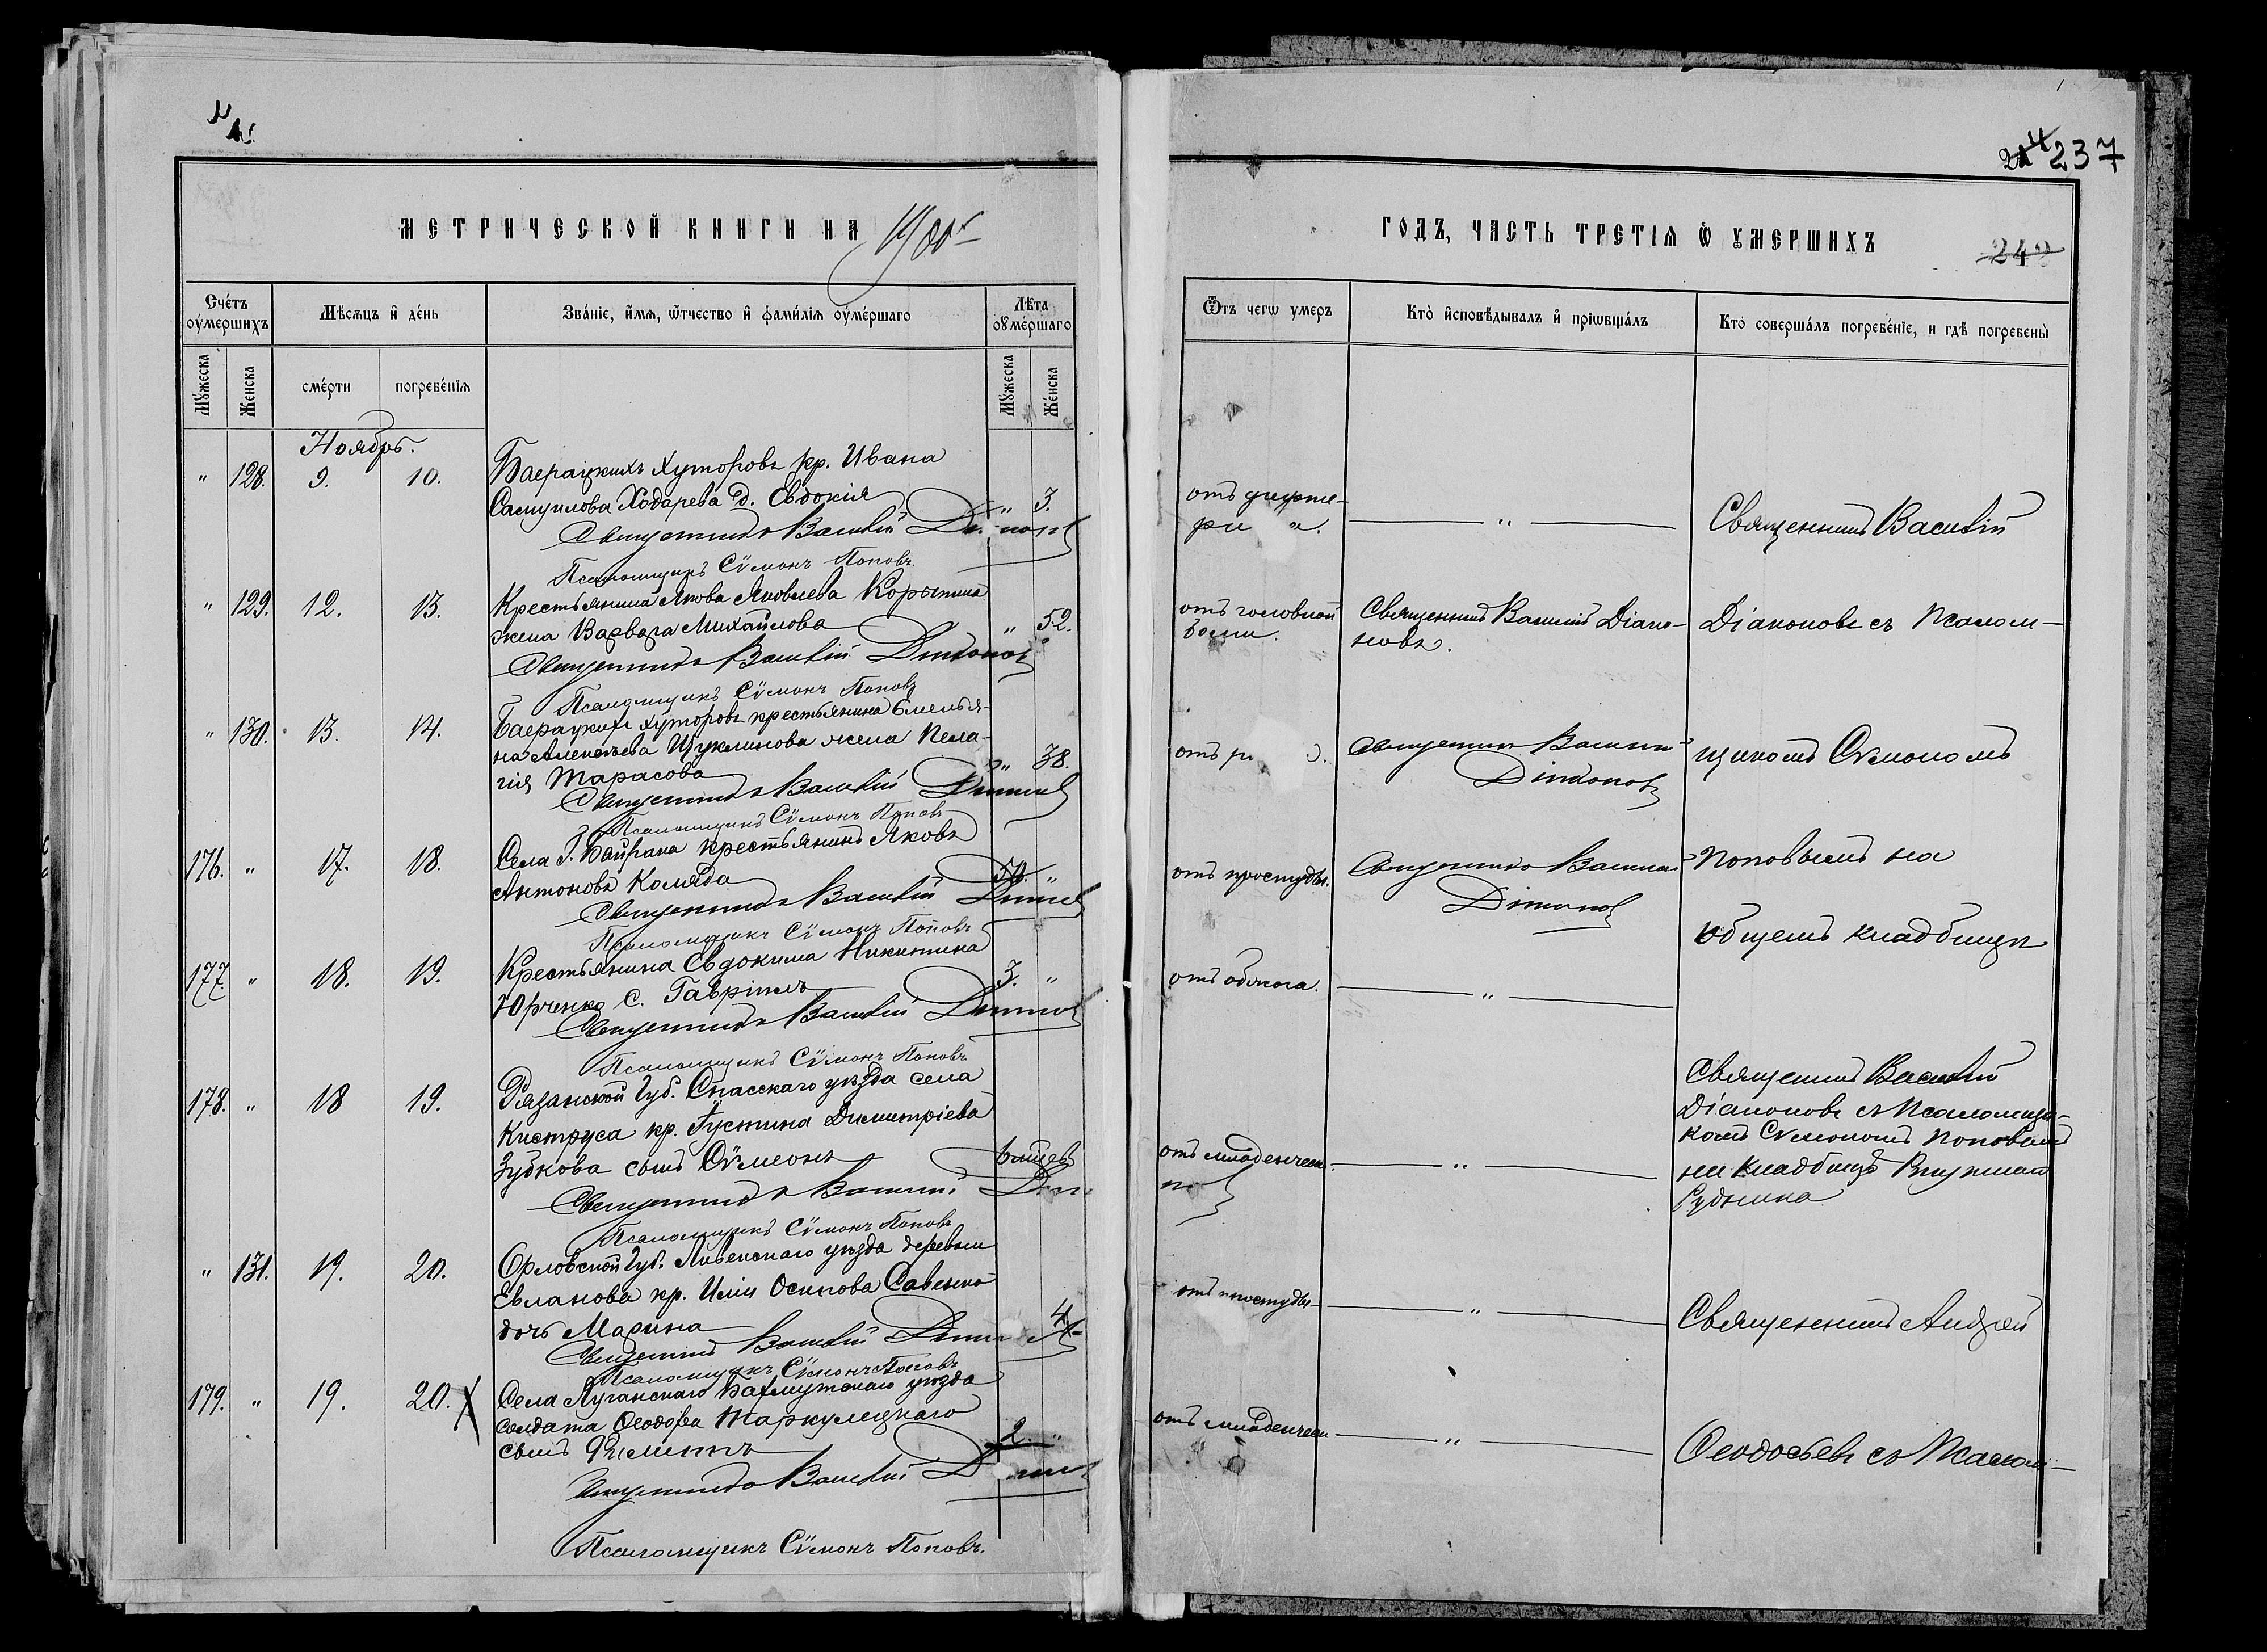 237
МЕТРИЧЕСКОЙ КНИГИ НА 1900
ГОДЪ, ЧАСТЬ ТРЕТІѦ Ѡ УМЕРШИХЪ
249
Сче́тъ оу́мершихъ
Мѣсѧцъ и҆ де́нь
Зва́нїе, и҆́мѧ, ѿтчество и҆ фами́лїѧ оу́ме́ршаго
Лѣ́та оу́ме́ршаго
Ѿтъ чегѡ умеръ
Кто̀ и҆сповѣ́дывалъ и҆ прїѡбща́лъ
Кто̀ соверша́лъ погребе́нїе, и гдѣ̀ погребены̀
Мꙋ́жеска
Же́нска
сме́рти
погребе́нїѧ
Мꙋ́жеска
Же́нска
Ноябрь.
" 128. 9. 10. Баерацкихъ хуторовъ кр. Ивана
Самуилова Ходарева д. Евдокія " 3.
Священникъ Василій
Псаломщикъ Сѵмонъ Поповъ.
от
Священникъ Василій
" 129. 12. 13. Крестьянина Якова Яковлева Корытина
жена Варвара Михайлова " 52.
Священникъ Василій Діаконовъ
Псаломщикъ Сѵмонъ Поповъ
отъ головной
боли.
Священникъ Василій Діако-
новъ.
Діаконовъ съ Псалом-
" 130. 13. 14. Баерацкихъ хуторовъ крестьянина Емелья-
на Алексѣева Щуклинова жена Пела-
гія Тарасова " 38.
Священникъ Василій Діаконовъ
Псаломщикъ Сѵмонъ Поповъ
отъ
Священникъ Василій
Діаконовъ
щикомъ Сѵмономъ
176. " 17. 18. Села Г. Байрака крестьянинъ Яковъ
Антоновъ Коляда 50. "
Священникъ Василій Діаконовъ
Псаломщикъ Сѵмонъ Поповъ
отъ простуды.
Священникъ Василій
Діаконовъ
Поповымъ на
общемъ кладбищѣ
177. " 18. 19. Крестьянина Евдокима Никитина
Юрченко с. Гавріилъ 3. "
Священникъ Василій Діаконовъ
Псаломщикъ Сѵмонъ Поповъ
отъ обжога.
"
178. " 18 19. Рязанской Губ. Спасскаго уѣзда села
Киструса кр. Іустина Димитріева
Зубкова сынъ Сѵмеонъ
Священникъ Василій
Псаломщикъ Сѵмонъ Поповъ
отъ младенческ.
"
Священникъ Василій
Діаконовъ съ Псаломщи-
комъ Сѵмономъ Поповымъ
на кладбищѣ
Рудника
" 131. 19. 20. Орловской Губ. Ливенскаго уѣзда деревни
Евланова кр. Иліи Осипова Савенко
дочь Марина 4
Священникъ Василій
Псаломщикъ Сѵмонъ Поповъ
отъ простуды
"
Священникъ Андрей
179. " 19. 20. Села Луганскаго Бахмутскаго уѣзда
солдата Ѳеодора Таркулецкаго
сынъ 2. "
Священникъ Василій
Псаломщикъ Сѵмонъ Поповъ.
отъ младенческ
"
Ѳеодосьевъ съ Псалом-